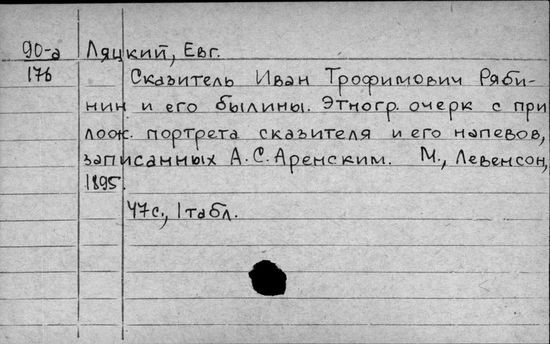 90-а Ляцкий, Евг.
176
Сказитель Иван Трофимович Ряби-
нин и его былины. Этногр. очерк с при
лож. портрета сказителя и его напевов,
записанных А.С. Аренским. М., Левенсон,
1895.
47 с., 1 табл.